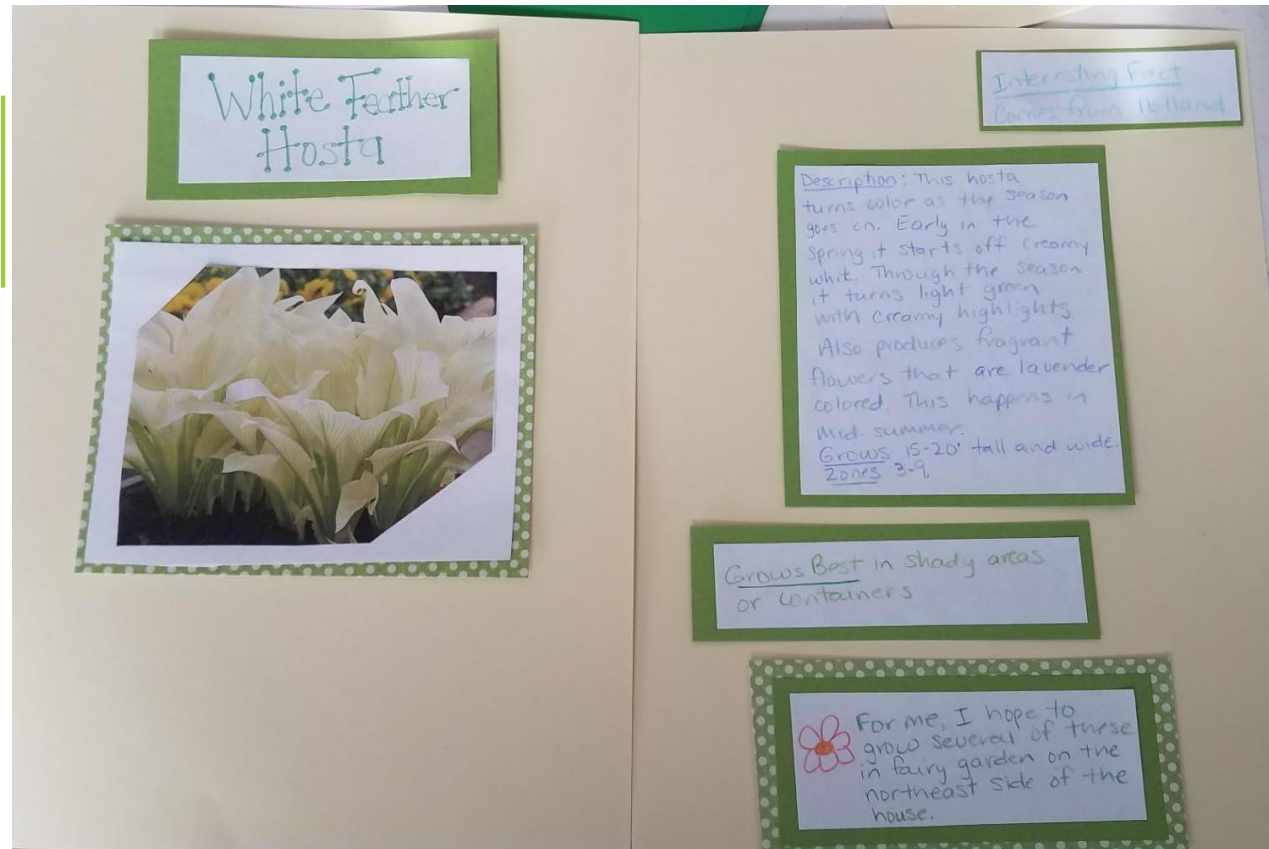 White Feather
Hosta
Interesting Fact
Comes from Holland
Description: This hosta
turns color as the season
goes on. Early in the
spring it starts off creamy
whit. Through the season
it turns light green
with creamy highlights.
Also produces fragrant
flowers that are lavender
colored. This happens in
mid-summer.
Grows 15-20" tall and wide.
Zones 3-9.
Grows Best in shady areas
or containers
For me, I hope to
grow several of these
in fairy garden on the
northeast side of the
house.